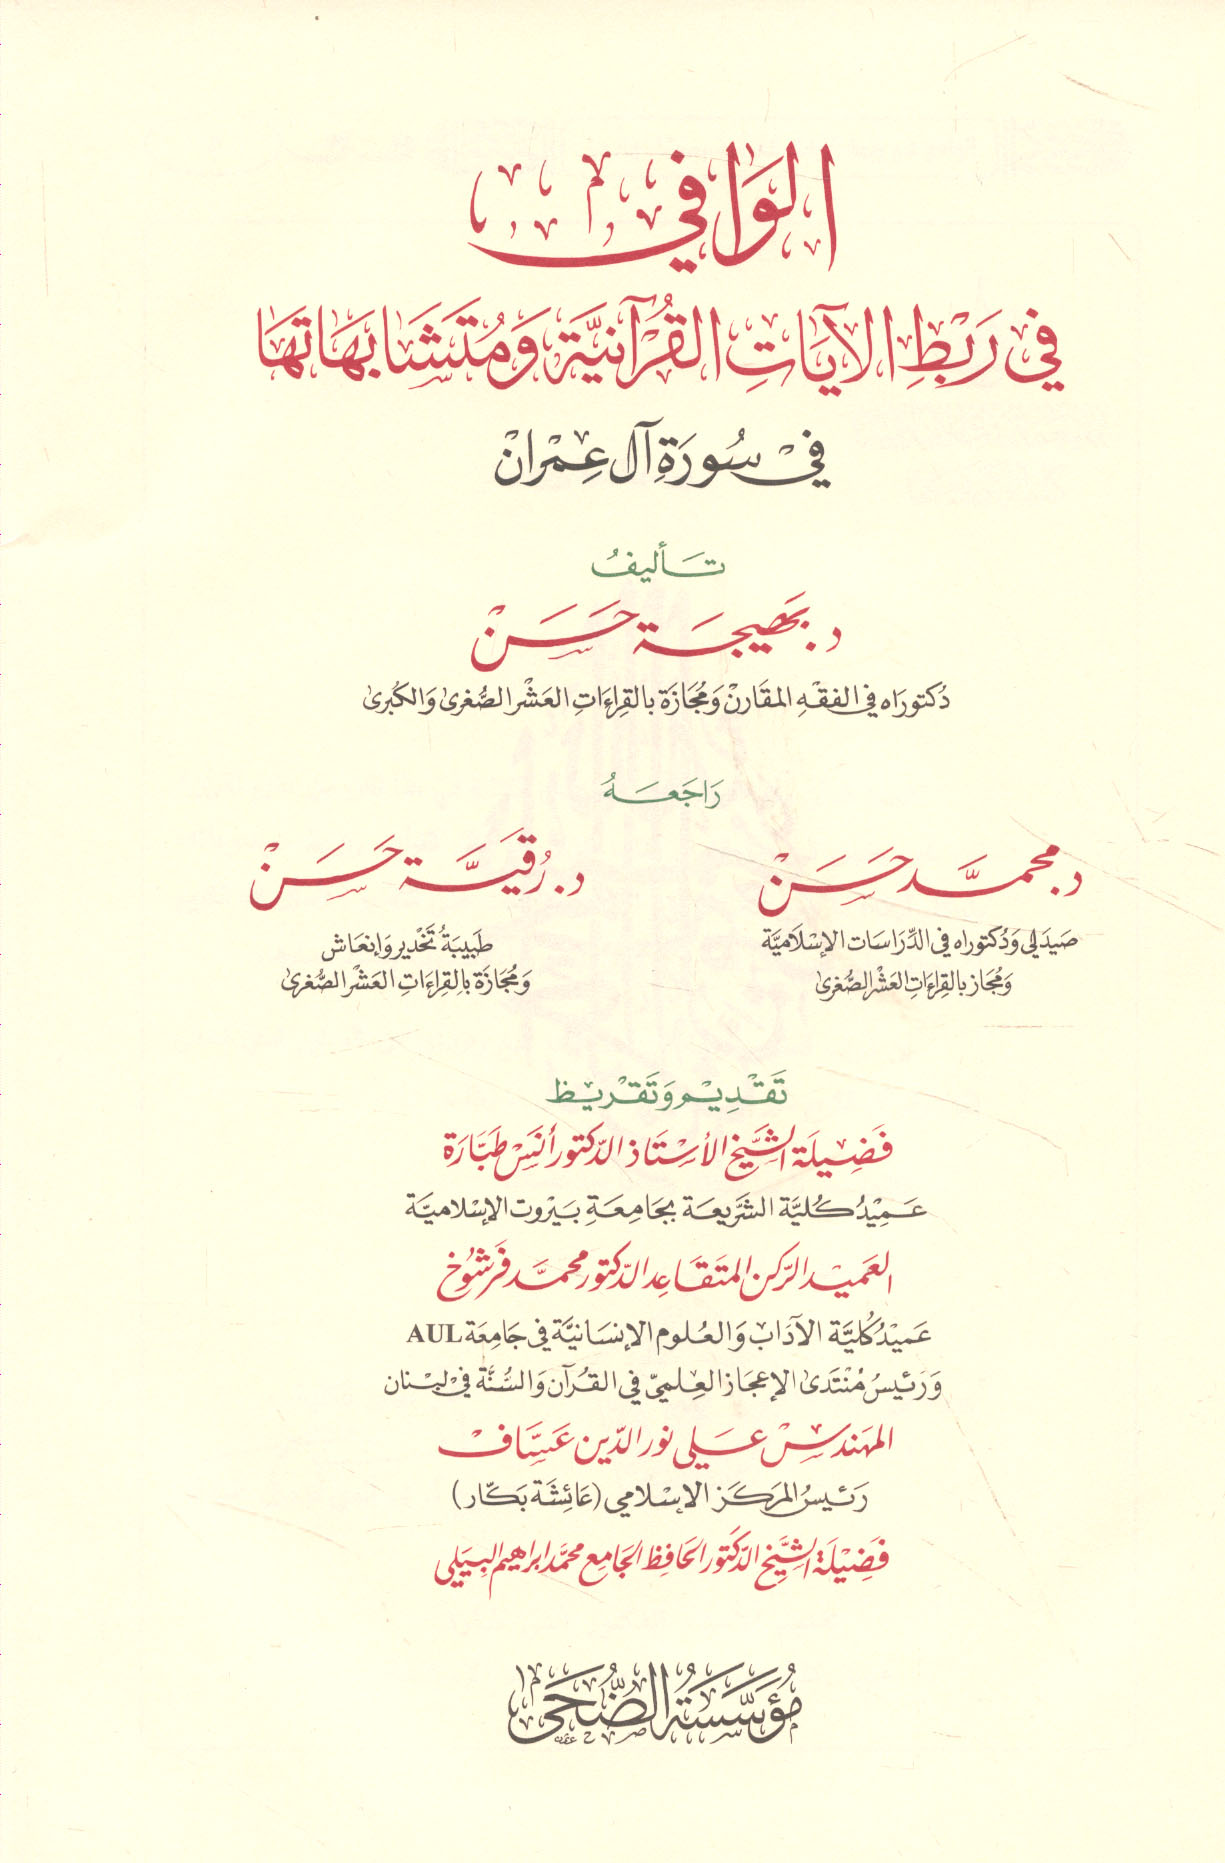 الوَافي
في رَبْطِ الآيَاتِ القُرآنيَّة وَمُتَشَابهَاتهَا
في سُورَةِ آل عِمْرانْ
تَأليفُ
د. بَهيجَة حَسَنْ
دُكتورَاه في الفقْهِ المقَارنْ وَمُجَازَة بالقِراءَاتِ العَشْر الصُّغرىٰ وَالكُبرىٰ
رَاجَعَهُ
د. محمَّد حَسَنْ
صَيدَلي وَدُكتوراه في الدِّرَاسَات الإسْلَاميَّة
وَمُجَاز بالقِراءَاتِ العَشْر الصُّغرىٰ
د. رُقيَّة حَسَنْ
طَبيبَةُ تَخْدير وَإنعَاش
وَمُجَازَة بالِقِراءَاتِ العَشْر الصُّغرىٰ
تَقْدِيْم وَتَقْريْظ
فَضِيلَة الشَّيخ الأسْتَاذ الدّكتور أنَسْ طَبَّارَة
عَمِيْدُ كُليَّة الشَّريعَة بجَامِعَةِ بَيْروت الإسْلاميَّة
العَميْد الرّكن المتقَاعِد الدّكتور محمَّد فَرشُوخ
عَميْدُ كُليَّة الآدَابْ وَالعُلوم الإنسَانيَّة في جَامِعَة AUL
وَرَئيسُ مُنْتَدىٰ الإعجَاز العِلميّ في القُرآن وَالسُّنَّة في لبْنان
المهَندسْ عَلي نور الدّين عَسَّافْ
رَئيسُ المركَز الإسْلامي (عَائِشَة بَكّار)
فَضِيْلَة الشَّيخ الدّكتور الحَافِظ الجَامِع محمَّد ابراهيم البيَلي
مُؤسَّسَةُ الضُّحَىٰ